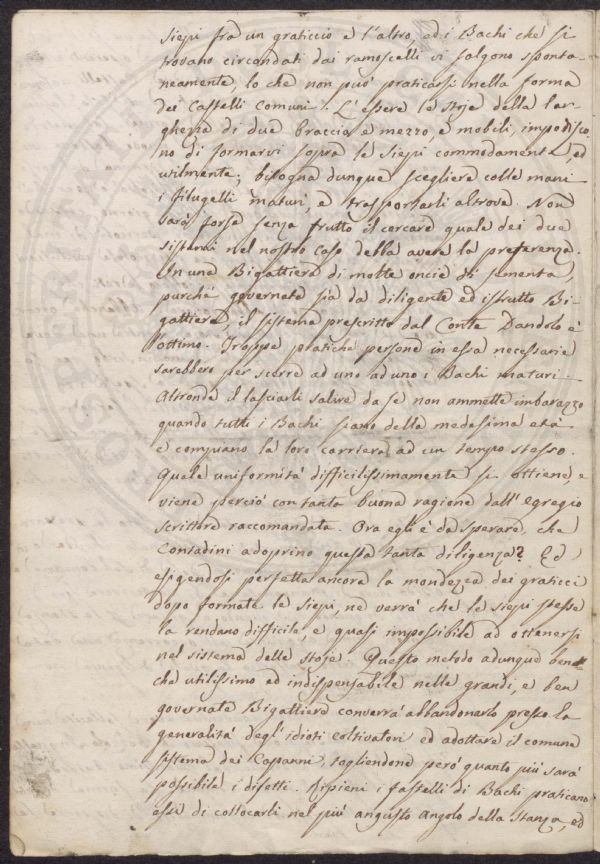 siepi fra un graticcio e l'altro, ed i Bachi che si
trovano circondati dai ramoscelli vi salgono sponta-
neamente, lo che non può praticarsi nella forma
dei Castelli comuni. L'essere le stoje della lar-
ghezza di due braccia e mezzo, e mobili, impedisco-
no di formarvi sopra le siepi commodamente, ed
utilmente; bisogna dunque scegliere colle mani
i filugelli maturi, e trasportarli altrove. Non
sarà forse senza frutto il cercare quale dei due
sistemi nel nostro caso debba avere la preferenza.
In una Bigattiera di molte oncie di sementa,
purchè governata sia da diligente ed istrutto Bi-
gattiere, il sistema prescritto dal Conte Dandolo è
ottimo. Troppe pratiche persone in essa necessarie
sarebbero per scerre ad uno ad uno i Bachi maturi.
Altronde il lasciarli salire da se non ammette imbarazzo
quando tutti i Bachi siano della medesima età
e compiano la loro carriera ad un tempo stesso.
Quale uniformità difficilissimamente si ottiene, e
viene perciò con tanta buona ragione dall'egregio
scrittore raccomandata. Ora egli è da sperare, che
Contadini adoprino questa tanta diligenza? Ed
esigendosi perfetta ancora la mondezza dei graticci
dopo formate le siepi, ne verrà che le siepi stesse
la rendano difficile, e quasi impossibile ad ottenersi
nel sistema delle stoje. Questo metodo adunque ben-
che utilissimo ed indispensabile nelle grandi, e ben
governate Bigattiere converrà abbandonarlo presso la
generalità degl'idioti coltivatori ed adottare il comune
sistema dei Capanni, togliendone però quanto più sarà
possibile i difetti. Ripieni i fastelli di Bachi praticano
essi di collocarli nel più angusto angolo della stanza, ed